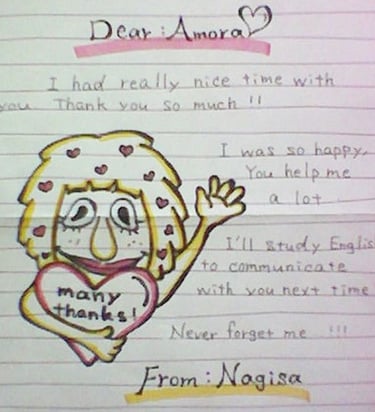 Dear : Amora
I had really nice time with
you. Thank you so much !!
I was so happy.
You help me
a lot
I'll study Englis
to communicate
with you next time
many
thanks!
Never forget me !!!
From : Nagisa